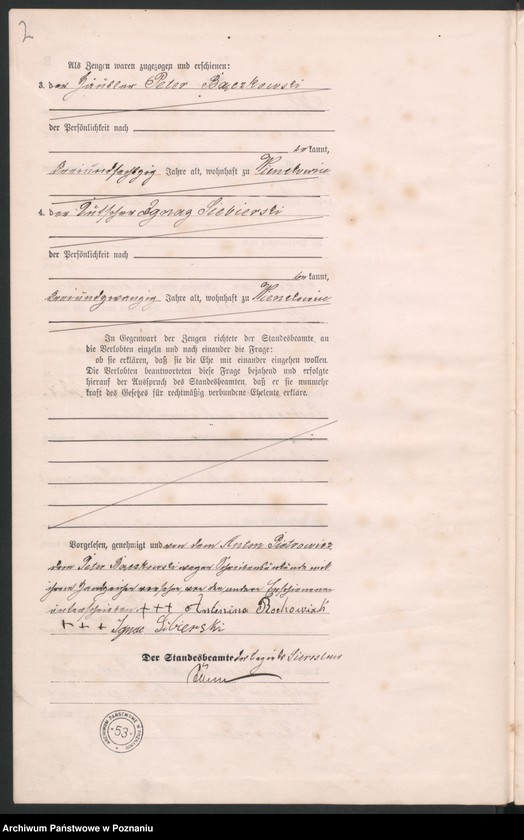 2
Als Zeugen waren zugezogen und erschienen:
3. der Häusler Peter Baczkowski
der Persönlichkeit nach
bekannt,
dreiundsechzig Jahre alt, wohnhaft zu
4. der Kutscher Ignaz Siebierski
der Persönlichkeit nach
bekannt,
dreiundzwanzig Jahre alt, wohnhaft zu
In Gegenwart der Zeugen richtete der Standesbeamte an
die Verlobten einzeln und nach einander die Frage:
ob sie erklären, daß sie die Ehe mit einander eingehen wollen.
Die Verlobten beantworteten diese Frage bejahend und erfolgte
hierauf der Ausspruch des Standesbeamten, daß er sie nunmehr
kraft des Gesetzes für rechtmäßig verbundene Eheleute erkläre.
Vorgelesen, genehmigt und von dem Anton Piotrowicz
dem Peter Baczkowski wegen Schreibensunkunde mit
ihrem Handzeichen versehen von den anderen Erschienenen
unterschrieben +++ Antonina
+++ Ignac Sibierski
Der Standesbeamte des Bezirks
ARCHIWUM PAŃSTWOWE W POZNANIU
53
Archiwum Państwowe w Poznaniu